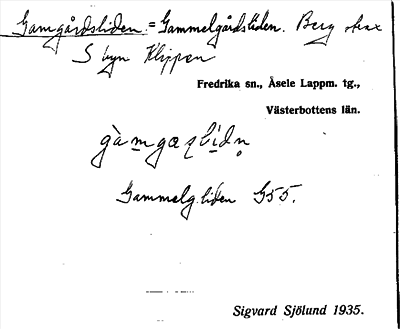 Gamgårdsliden. = Gammelgårdsliden. Berg strax
S byn Klippen
Fredrika sn., Åsele Lappm. tg.,
Västerbottens län.
gàmgaȥlìdn̥
Gammelg.liden G55.
Sigvard Sjölund 1935.